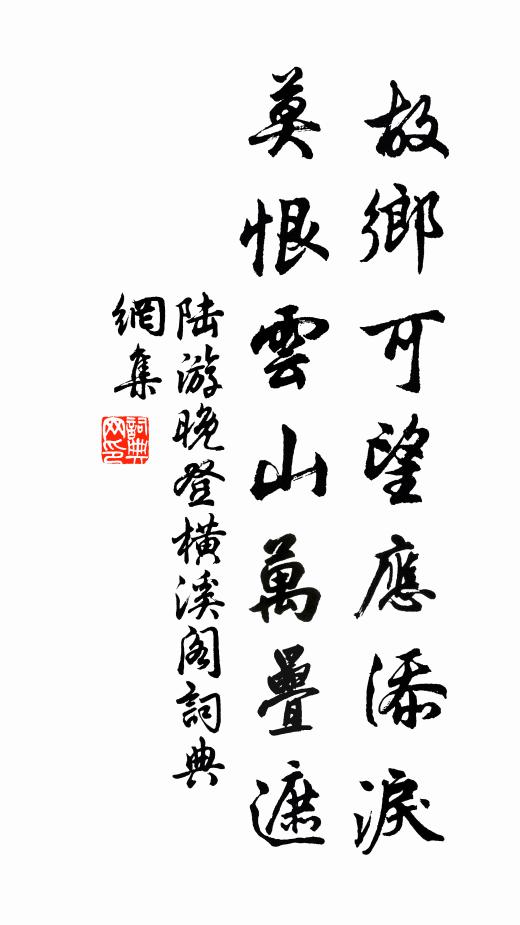 故鄉可望應添淚
莫恨雲山萬疊遮
陸游晚登橫溪阁詞典
網集
詞典网印